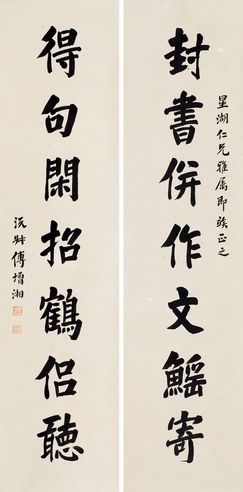 星湖仁兄雅属即蘄正之
封書併作文鰩寄
得句閑招鶴侶聽
沅叔傅增湘